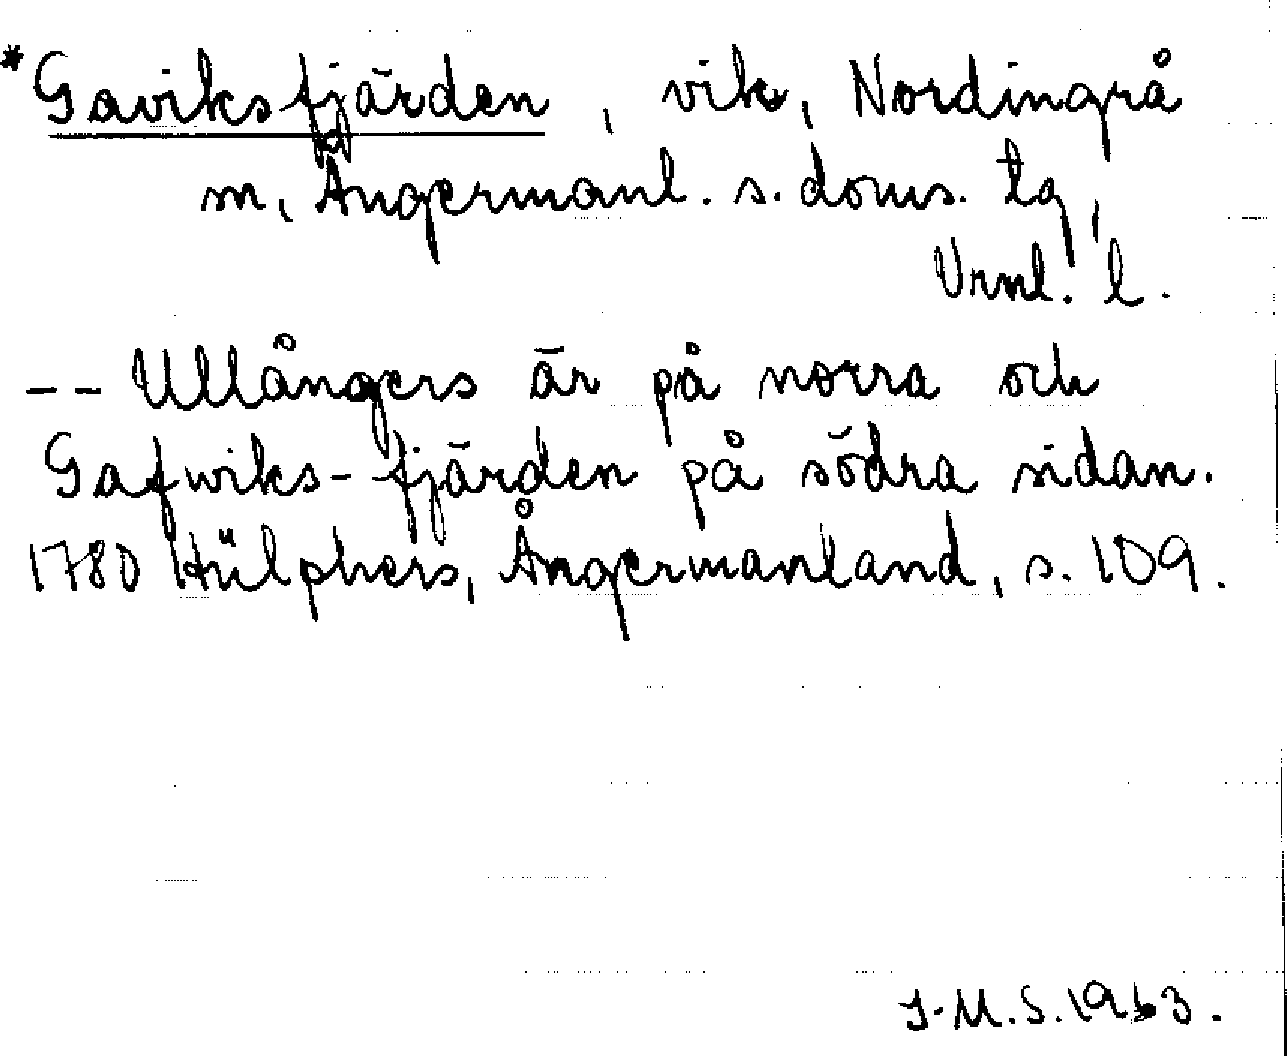 *Gaviksfjärden, vik, Nordingrå
sn, Ångermanl. s. doms. tg,
Vrnl. l.
-- Ullångers är på norra och
Gafwiks-fjärden på södra sidan.
1780 Hülphers, Ångermanland, s. 109.
J.M.S. 1963.